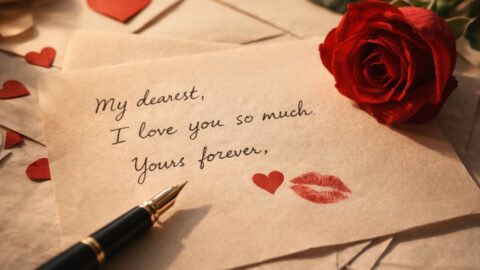 My dearest,
I love you so much.
Yours forever,